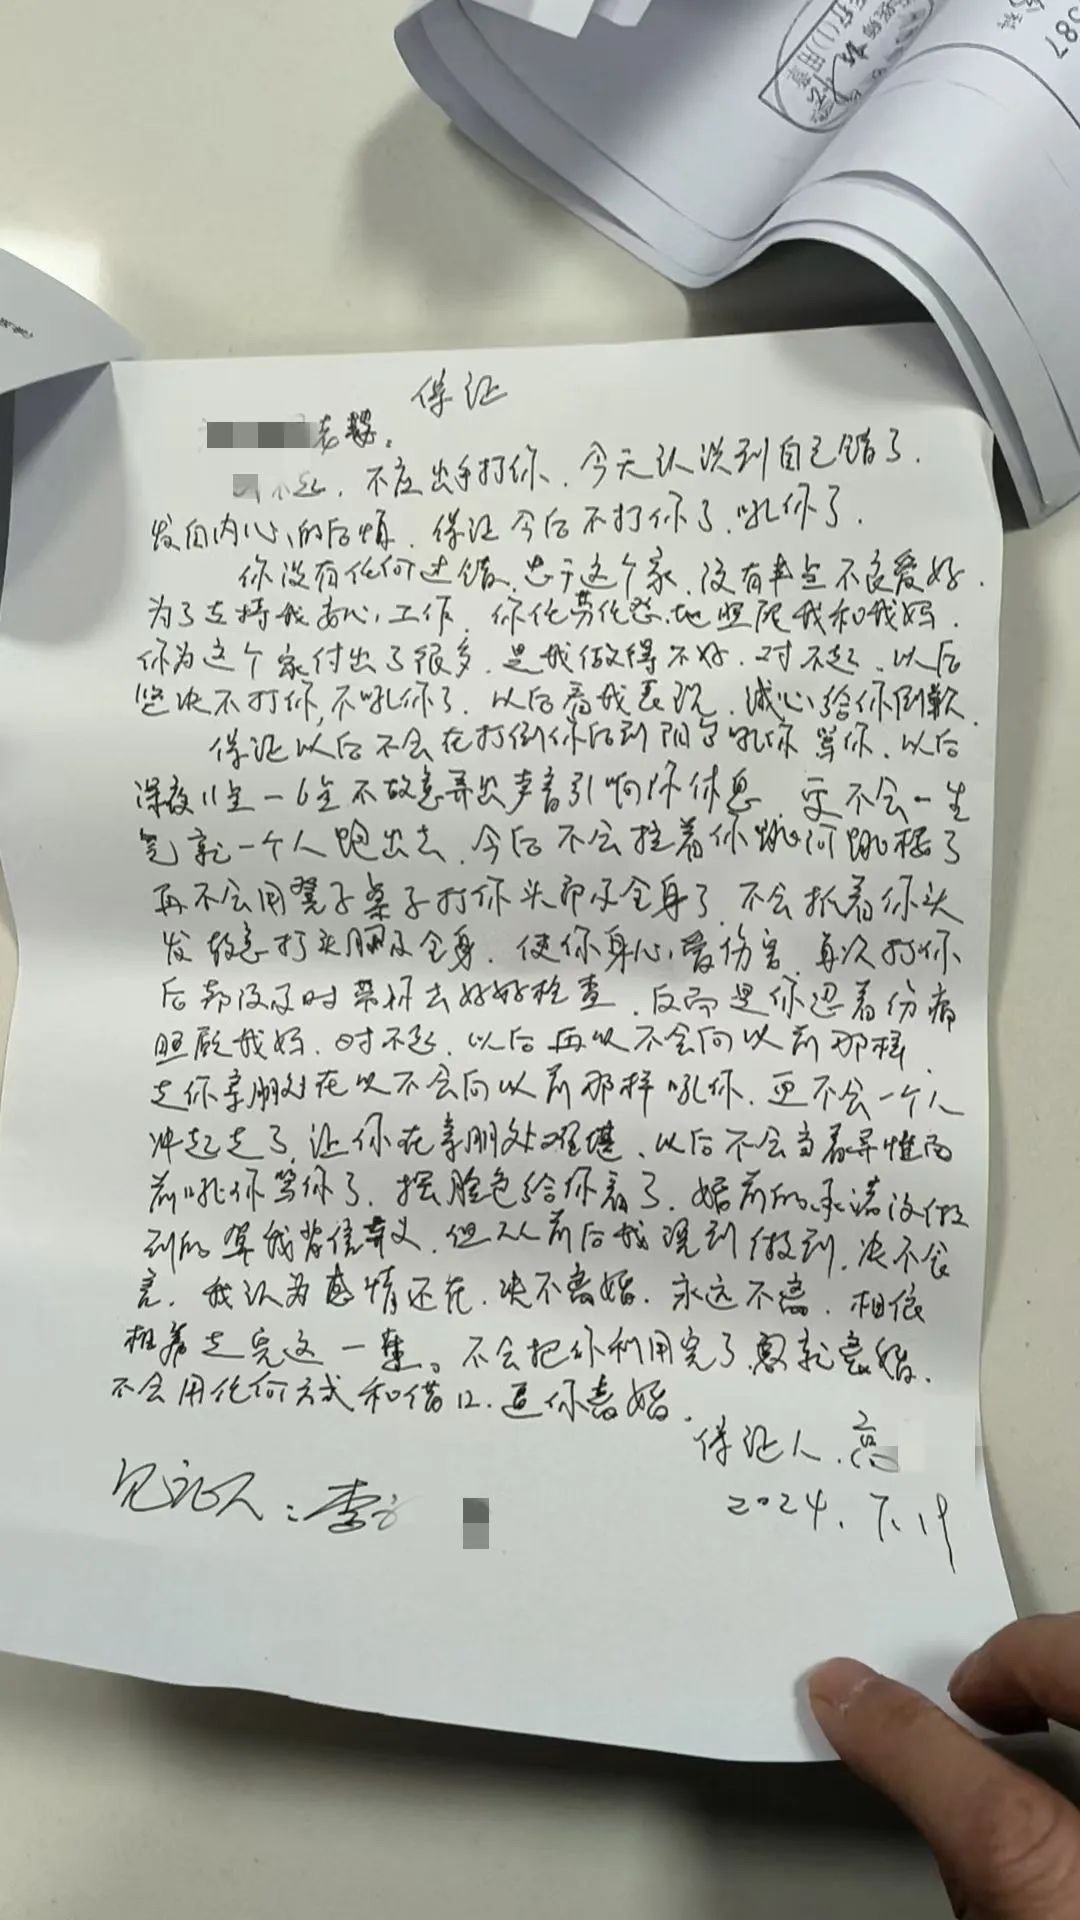 保证
老婆。
不起、不应出手打你、今天认识到自己错了.
发自内心的后悔、保证今后不打你了、吼你了.
你没有任何过错、忠于这个家、没有半点不良爱好.
为了支持我安心工作、你任劳任怨地照顾我和我妈.
你为这个家付出了很多、是我做得不好、对不起、以后
坚决不打你,不吼你了、以后看我表现、诚心给你倒歉.
保证以后不会在打倒你后到阳台吼你骂你、以后
深夜11点一6点不故意弄出声音引响你休息、更不会一生
气就一个人跑出去、今后不会拉着你跳河跳楼了
再不会用凳子桌子打你头部及全身了、不会抓着你头
发故意打头脑及全身、使你身心受伤害、每次打你
后都没及时带你去好好检查、反而是你忍着伤痛
照顾我妈、对不起、以后再以不会向以前那样
走你亲朋处在以不会向以前那样吼你、更不会一个人
冲起走了、让你在亲朋处难堪、以后不会当着异性面
前吼你骂你了、摆脸色给你看了、婚前的承诺没做
到的算我背信弃义、但从前后我说到做到、决不食
言、我认为感情还在、决不离婚、永远不离、相依
相靠走完这一辈。不会把你利用完了就离婚、
不会用任何方式和借口、逼你离婚.
保证人、高
见证人:李
2024.7.19